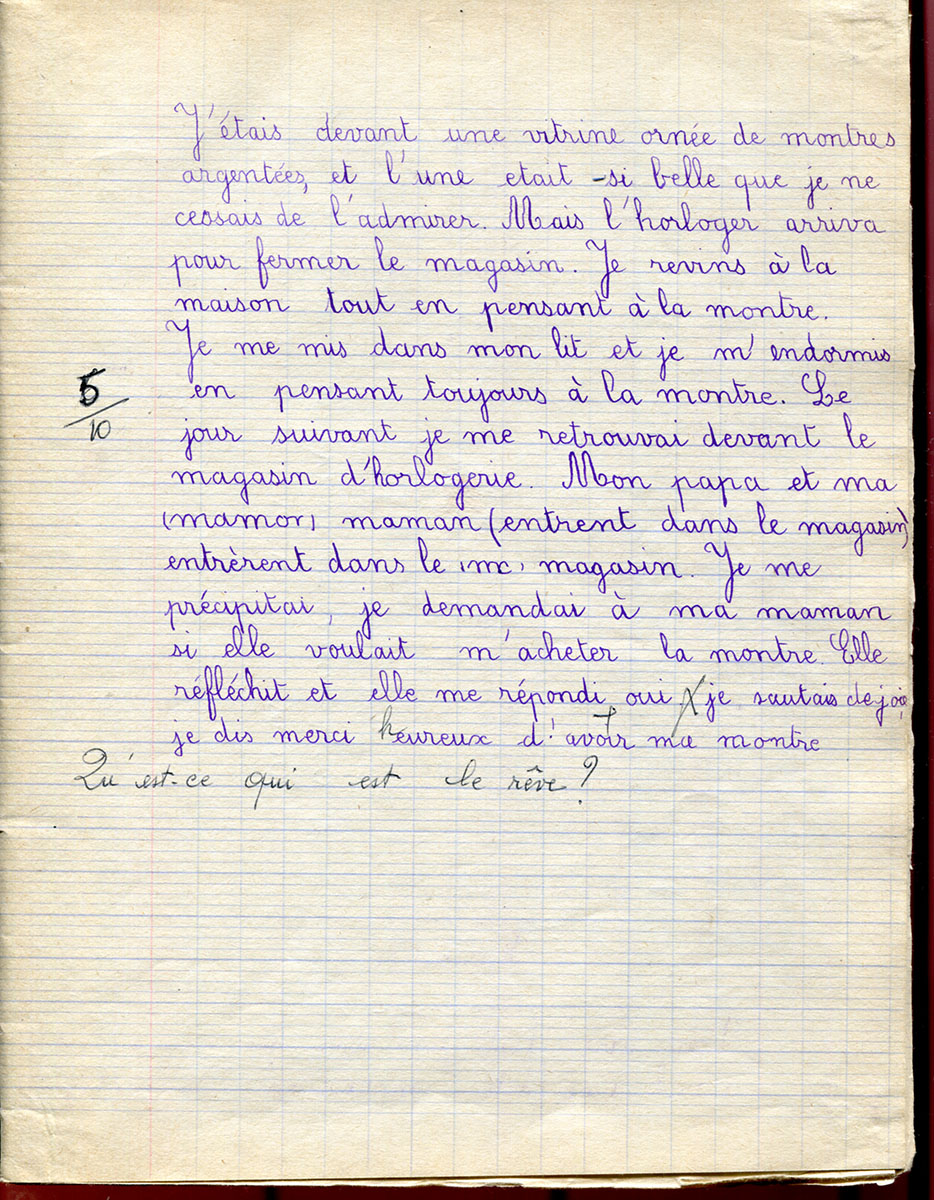 J'étais devant une vitrine ornée de montres
argentées, et l'une etait -si belle que je ne
cessais de l'admirer. Mais l'horloger arriva
pour fermer le magasin. Je revins à la
maison tout en pensant à la montre.
Je me mis dans mon lit et je m'endormis
en pensant toujours à la montre. Le
5/10
jour suivant je me retrouvai devant le
magasin d'horlogerie. Mon papa et ma
(mamor) maman (entrent dans le magasin)
entrèrent dans le (mc) magasin. Je me
précipitai, je demandai à ma maman
si elle voulait m'acheter la montre. Elle
réfléchit et elle me répondi oui je sautais de joie
je dis merci heureux d'avoir ma montre
Qu'est-ce qui est le rêve?